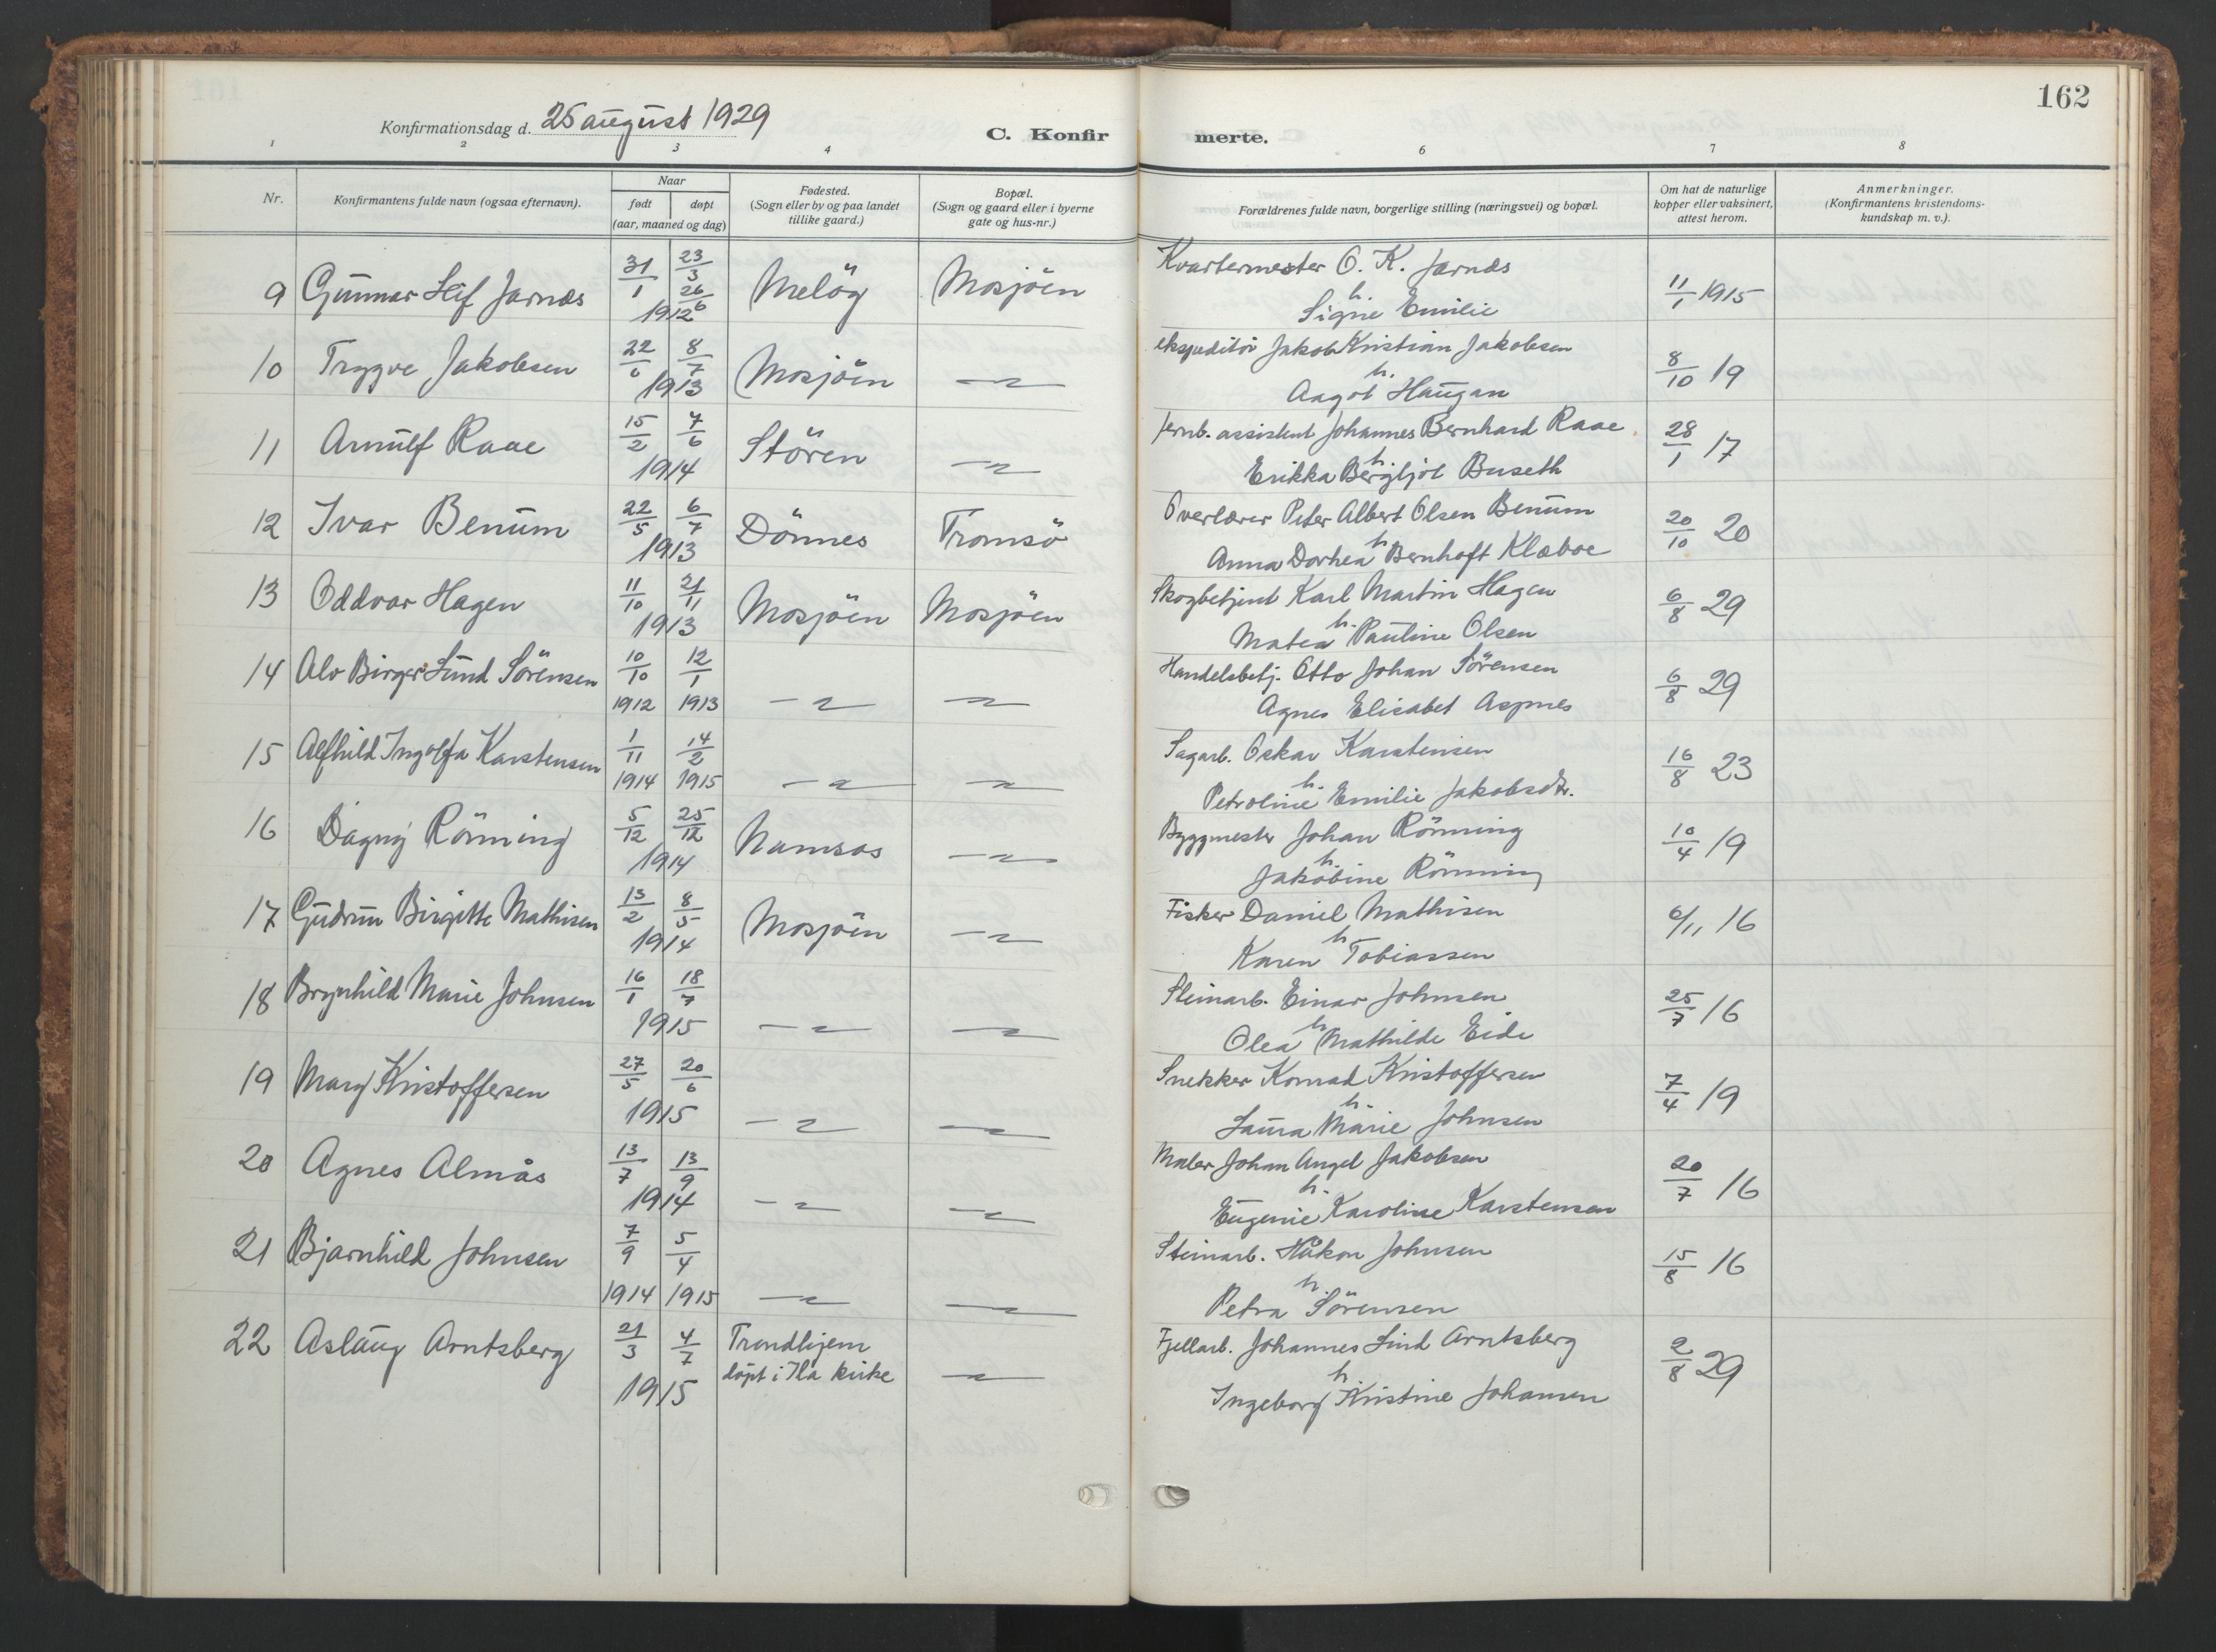 162
Konfirmationsdag d. 25 august 1929
C. Konfirmerte.
1 2 3 4 6 7 8
Nr.
Konfirmantens fulde navn (ogsaa efternavn).
Naar
født døpt
(aar, maaned og dag)
Fødested.
(Sogn eller by og paa landet
tillike gaard.)
Bopæl.
(Sogn og gaard eller i byerne
gate og hus-nr.)
Forældrenes fulde navn, borgerlige stilling (næringsvei) og bopæl.
Om hat de naturlige
kopper eller vaksinert,
attest herom.
Anmerkninger.
(Konfirmantens kristendoms-
kundskap m. v.).
9 Gunnar Leif Jarnæs 31/1 23/3 26/6 1912 Melöy Mosjöen Kvartermester O. K. Jarnæs 11/1 1915
h.
Signe Emilie
10 Trygve Jakobsen 22/6 8/7 1913 Mosjöen —"— ekspeditör Jakob Kristian Jakobsen 8/10 19
h.
Aagot Haugan
11 Arnulf Raae 15/2 7/6 1914 Stören —"— Jernb. assistent Johannes Bernhard Raae 28/1 17
h.
Erikka Bergljot Buseth
12 Ivar Benum 22/5 6/7 1913 Dönnes Tromsö Overlærer Peter Albert Olsen Benum 20/10 20
h
Anna Dorhea Bernhoft Klæboe
13 Oddvar Hagen 11/10 21/11 1913 Mosjöen Mosjöen Skogbetjent Karl Martin Hagen 6/8 29
h.
Matea Pauline Olsen
14 Alv Birger Lund Sörensen 10/10 1912 12/1 1913 —"— —"— Handelsbetj. Otto Johan Sörensen 6/8 29
Agnes Elisabet Aspnes
15 Alfhild Ingolfa Karstensen 1/11 1914 14/2 1915 —"— —"— Sagarb. Oskar Karstensen 16/8 23
h.
Petroline Emilie Jakobsdtr.
16 Dagny Rönning 5/12 25/12 1914 Namsos —"— Byggmester Johan Rönning 10/4 19
h.
Jakobine Rönning
17 Gudrun Birgitte Mathisen 13/2 8/5 1914 Mosjöen —"— Fisker Daniel Mathisen 6/11 16
h
Karen Tobiassen
18 Brynhild Marie Johnsen 16/1 18/7 1915 —"— —"— Steinarb. Einar Johnsen 25/7 16
h
Olea Mathilde Eide
19 Mary Kristoffersen 27/5 20/6 1915 —"— —"— Snekker Konrad Kristoffersen 7/4 19
h.
Laura Marie Johnsen
20 Agnes Almås 13/7 13/9 1914 —"— —"— Maler Johan Angel Jakobsen 20/7 16
h.
Eugenie Karoline Karstensen
21 Bjarnhild Johnsen 7/9 1914 5/4 1915 —"— —"— Steinarb. Håkon Johnsen 15/8 16
h.
Petra Sörensen
22 Aslaug Arntsberg 21/3 4/7 1915 Trondhjem —"— Fjellarb. Johannes Lind Arntsberg 2/8 29
döpt i Ila kirke
h.
Ingeborg Kristine Johansen